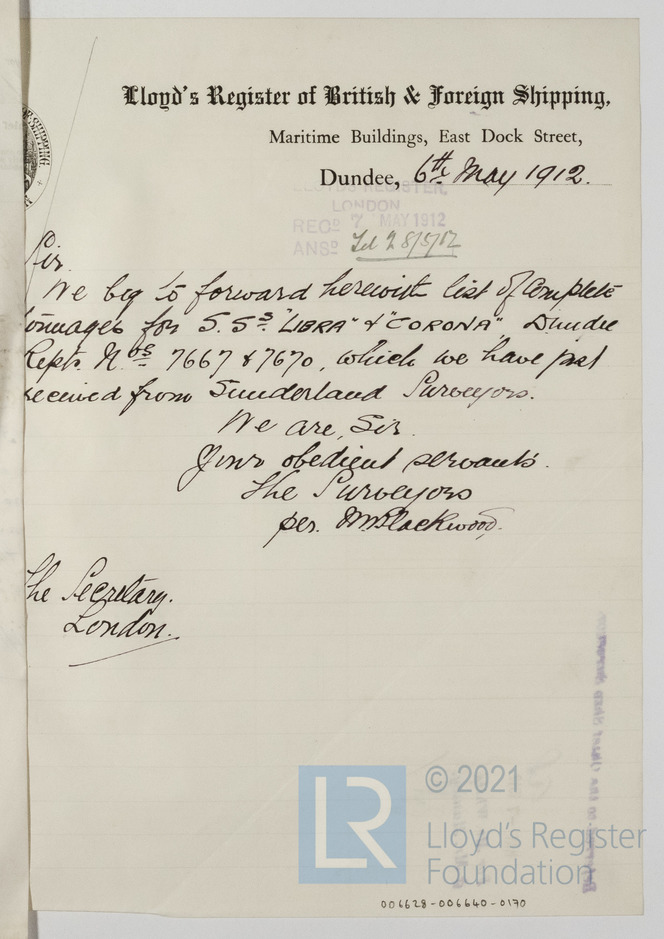 Lloyd's Register of British & Foreign Shipping,
Maritime Buildings, East Dock Street,
Dundee, 6th May 1912.
LLOYDS REGISTER,
LONDON
RECD 7 MAY 1912
ANSD Tel 28/5/12
Sir
We beg to forward herewith list of complete
tonnages for S.Ss "LIBRA" & "CORONA", Dundee
Repts. Nos 7667 & 7670, which we have just
received from Sunderland Surveyors.
We are, Sir
Your obedient servants.
The Surveyors
per. Blackwood,
The Secretary.
London.
LR
© 2021
Lloyd's Register
Foundation
006628-006640-0170